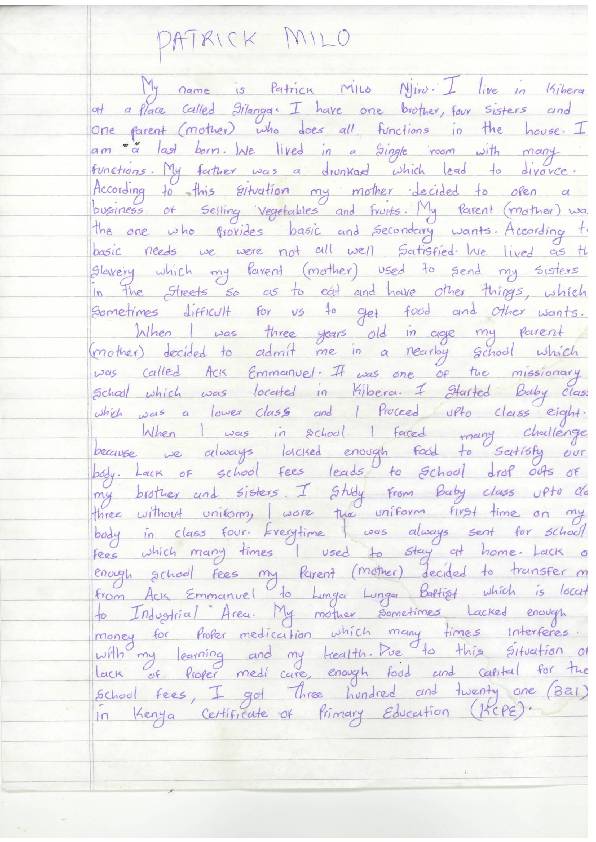 PATRICK MILO
My name is Patrick Milo Njiru. I live in Kibera
at a place called Silanga. I have one brother, four sisters and
one parent (mother) who does all functions in the house. I
am a last born. We lived in a single room with many
functions. My father was a drunkard which lead to divorce.
According to this situation my mother decided to open a
business of selling vegetables and fruits. My Parent (mother) wa
the one who provides basic and secondary wants. According t
basic needs we were not all well satisfied. We lived as th
slavery which my Parent (mother) used to send my sisters
in the streets so as to eat and have other things, which
sometimes difficult for us to get food and other wants.
When I was three years old in age my parent
(mother) decided to admit me in a nearby school which
was called Ack Emmanuel. It was one of the missionary
school which was located in Kibera. I started Baby class
which was a lower class and I Proceed upto class eight.
When I was in school I faced many challenge
because we always lacked enough food to satisfy our
body. Lack of school fees leads to school drop outs of
my brother and sisters. I study from Baby class upto cla
three without uniform, I wore the uniform first time on my
body in class four. Everytime I was always sent for school
fees which many times I used to stay at home. Lack o
enough school fees my Parent (mother) decided to transfer m
from Ack Emmanuel to Lunga Lunga Baptist which is locat
to Industrial Area. My mother sometimes lacked enough
money for Proper medication which many times interferes
with my learning and my health. Due to this situation of
lack of Proper medi care, enough food and capital for the
school fees, I got Three hundred and twenty one (321)
in Kenya Certificate of Primary Education (KCPE).